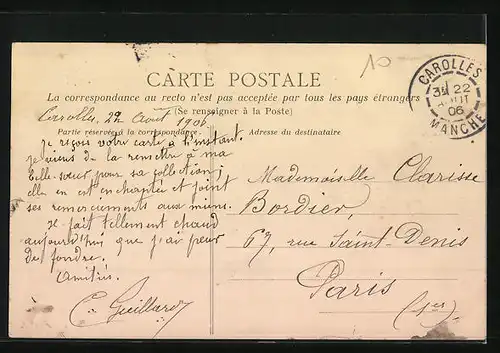 10
CARTE POSTALE
La correspondance au recto n'est pas acceptée par tous les pays étrangers
(Se renseigner à la Poste)
Carolles, 22 août 1906
Partie réservée à la correspondance.
Adresse du destinataire
CAROLLES
22
AOUT
06
MANCHE
Je reçois votre carte à l'instant.
je viens de la remettre à ma
belle-sœur pour sa collection ;
elle en est enchantée et joint
ses remerciements aux miens.
Il fait tellement chaud
aujourd'hui que j'ai peur
de fondre.
Amitiés.
C. Guillard
Mademoiselle Clarisse
Bordier,
67, rue Saint-Denis
Paris
(1er)